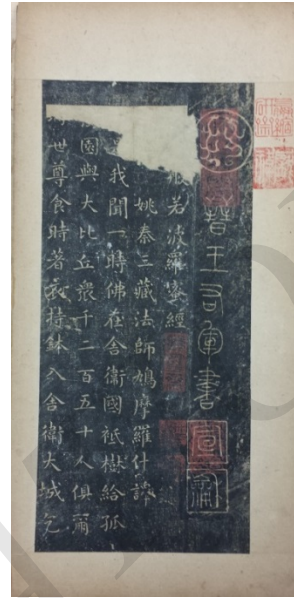 晉王右軍書
般若波羅蜜經
姚秦三藏法師鳩摩羅什譯
我聞一時佛在舍衛國祇樹給孤
園與大比丘眾千二百五十人俱爾
世尊食時著衣持鉢入舍衛大城乞
宣和